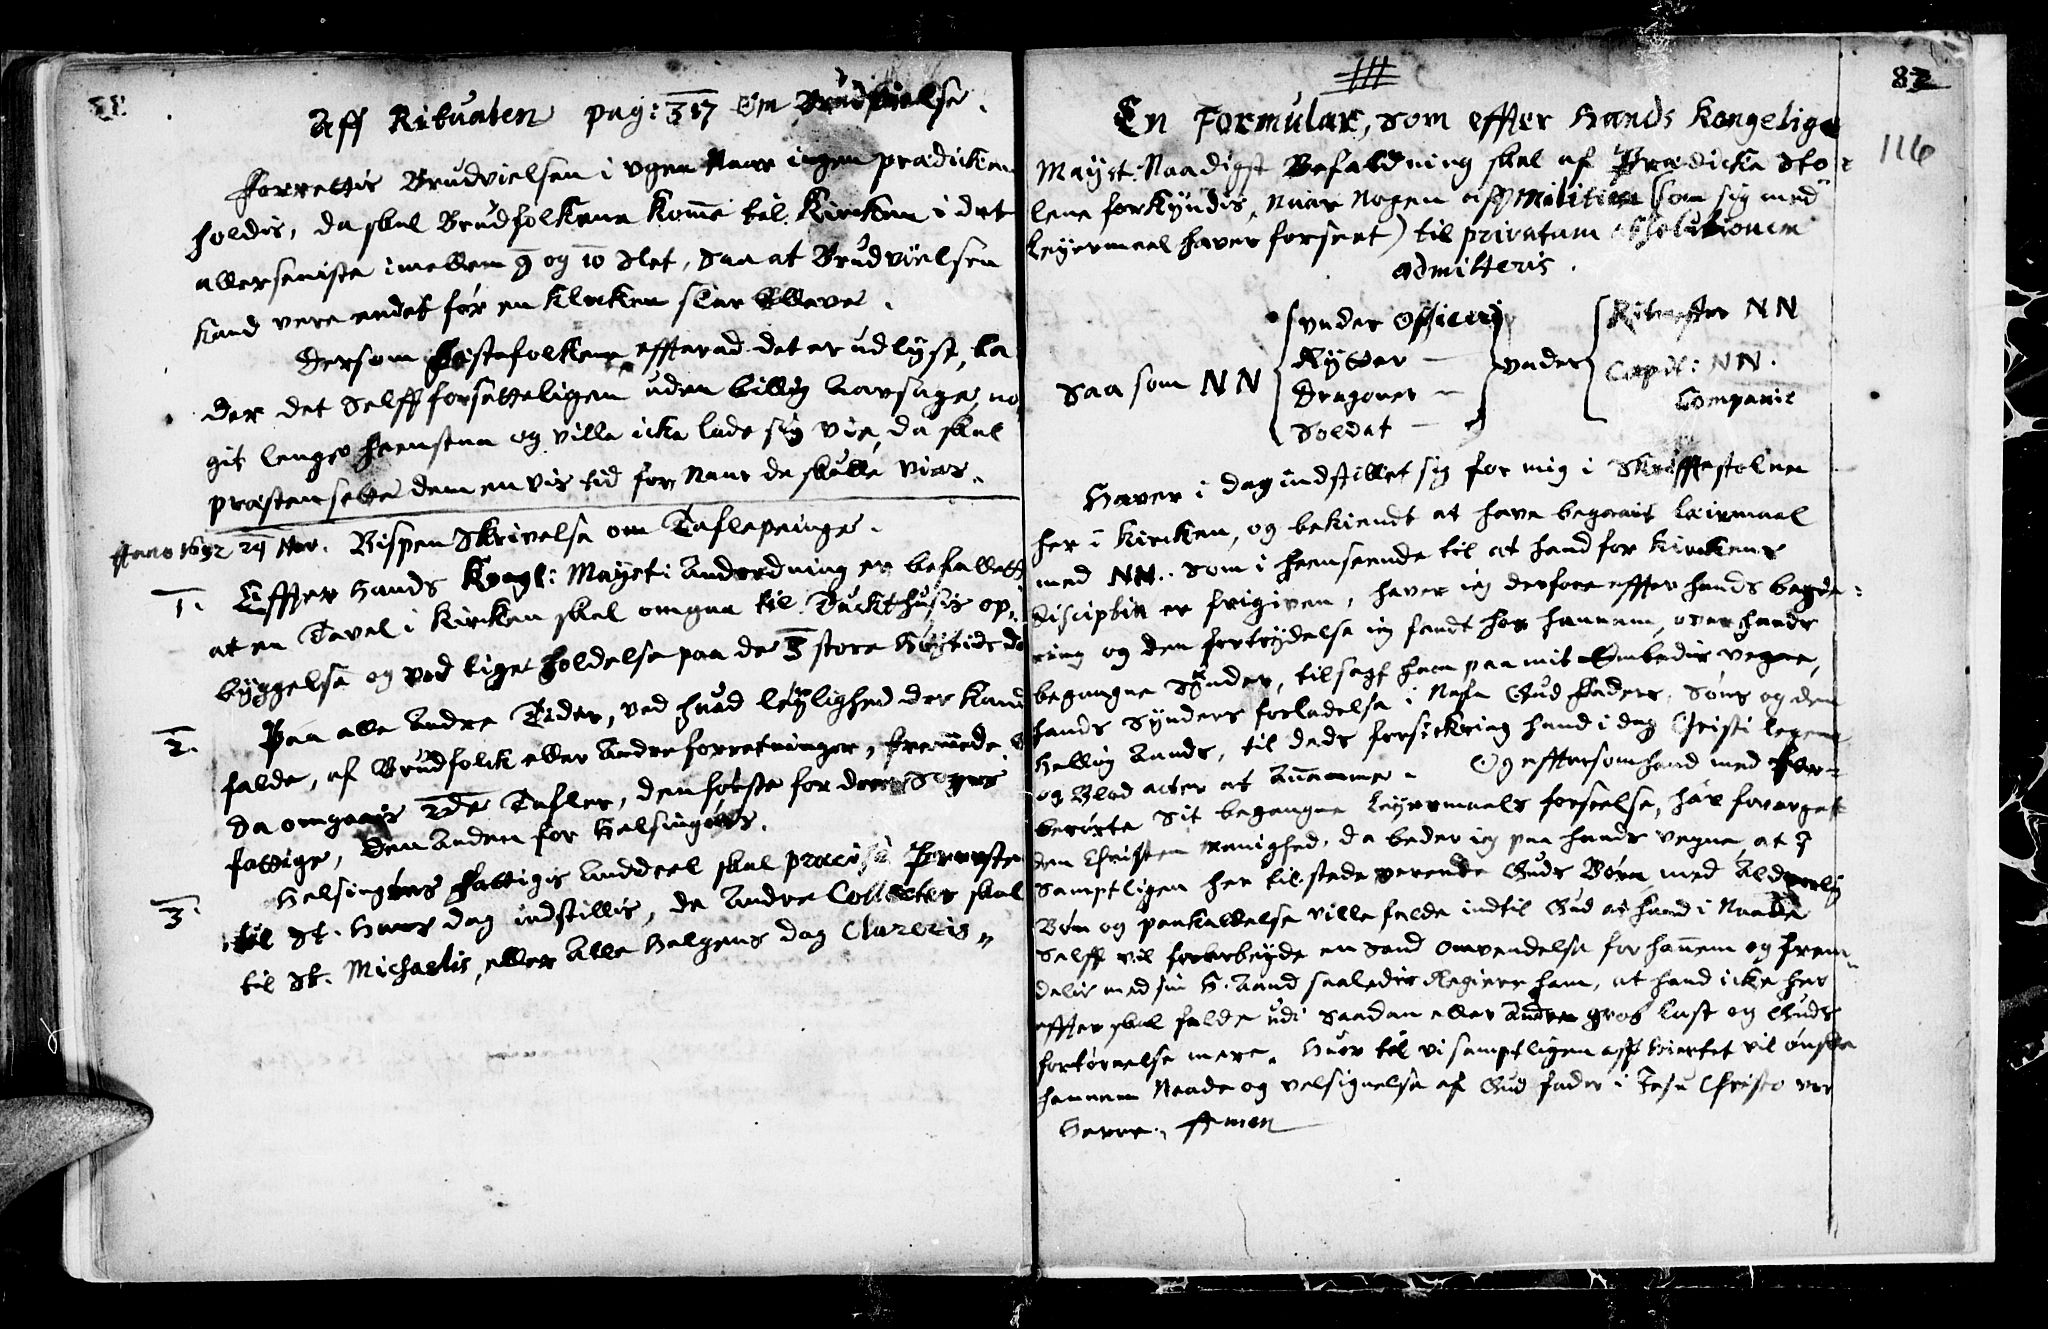 Aff Ritualen pag: 317 Om Brudvielse.
Forrettis Brudvielsen i ugen Naar ingen prædicken
holdis, da skal Brudfolkene komme til Kircken i det
allerseniste imellem 9 og 10 Slet, Saa at Brudvielsen
kand vere endet før en Klocken slar Elleve.
Dersom Festefolkene, effterad det er udlyst, la
der det Selff forsetteligen uden billig Aarsage, no
git lenger henstaa og ville icke lade sig vie, da skal
præsten sette dem en vis tid for Naar de skulle vies.
Anno 1692 24 Nov. Bispens Skrivelse om Taflepenge.
1. Effter Hands Kongl: Mayst: Anordning er befallett
at en Tavel i Kircken skal omgaa til Tuckthusis op-
byggelse og ved lige holdelse paa de 3 store Høytids da
2. Paa alle Andre Tider, ved hvad leylighed der kand
falde, af Brudfolck eller Andre forretninger, fremmede
da omgaais 2de Tafler, den første for deres Sogns
fattige, Den Anden for Helsingørs.
3. Helsingørs Fattigis Anddeel skal præcise Prousten
til St. Hans dag indstillis, de Andre Collecter skal
til St. Michaelis, eller Alle Helgens dag Clareris,,
82
116
En Formular, som effter Hands Kongelige
Mayst. Naadigst Befaldning skal af Prædicke Sto-
lene forkyndis, Naar Nogen aff Militien (som sig med
Leyermaal haver forseet) til privatam absolutionem
admitteris.
Saa som NN { under Officer / Rytter — / Dragoner — / Soldat — } under { Ritmester NN / Capit: NN. / Compagnie
Haver i dag indstillet sig for mig i Skrifftestolen
her i Kircken, og bekiendt at have begaait Leirmaal
med NN. Som i henseende til at hand for Kirckens
Disciplin er frigiven, haver ieg derfore effter hands begie-
ring og den fortrydelse ieg fandt hos hannem, over hands
begangne Synder, tilsagt ham paa mit Embedis vegne,
hands Synders forladelse i Nafn Gud Faders, Søns og den
Hellig Aands, til dends forsickring hand i dag Christi legeme
og Blod acter at Annamme. Og effttersom hand med For-
berørte Sit begangne Leyermaals forseelse, har forarget
den Christen menighed, da beder ieg paa hands vegne, at I
samptligen her tilstede verende Guds Børn, med Alvorlig
Bøn og paakaldelse ville falde indtil Gud at hand i Naade
Selff vil forarbeyde en Sand omvendelse for hannem og frem-
delis med sin H. Aand saaledis Regiere ham, at hand icke her
effter skal falde udi Saadan eller Anden grof last og Guds
fortørnelse mere. Hvor til vi samptligen aff Hiertet vil ønske
hannem Naade og velsignelse af Gud fader i Jesu Christo vor
Herre. Amen